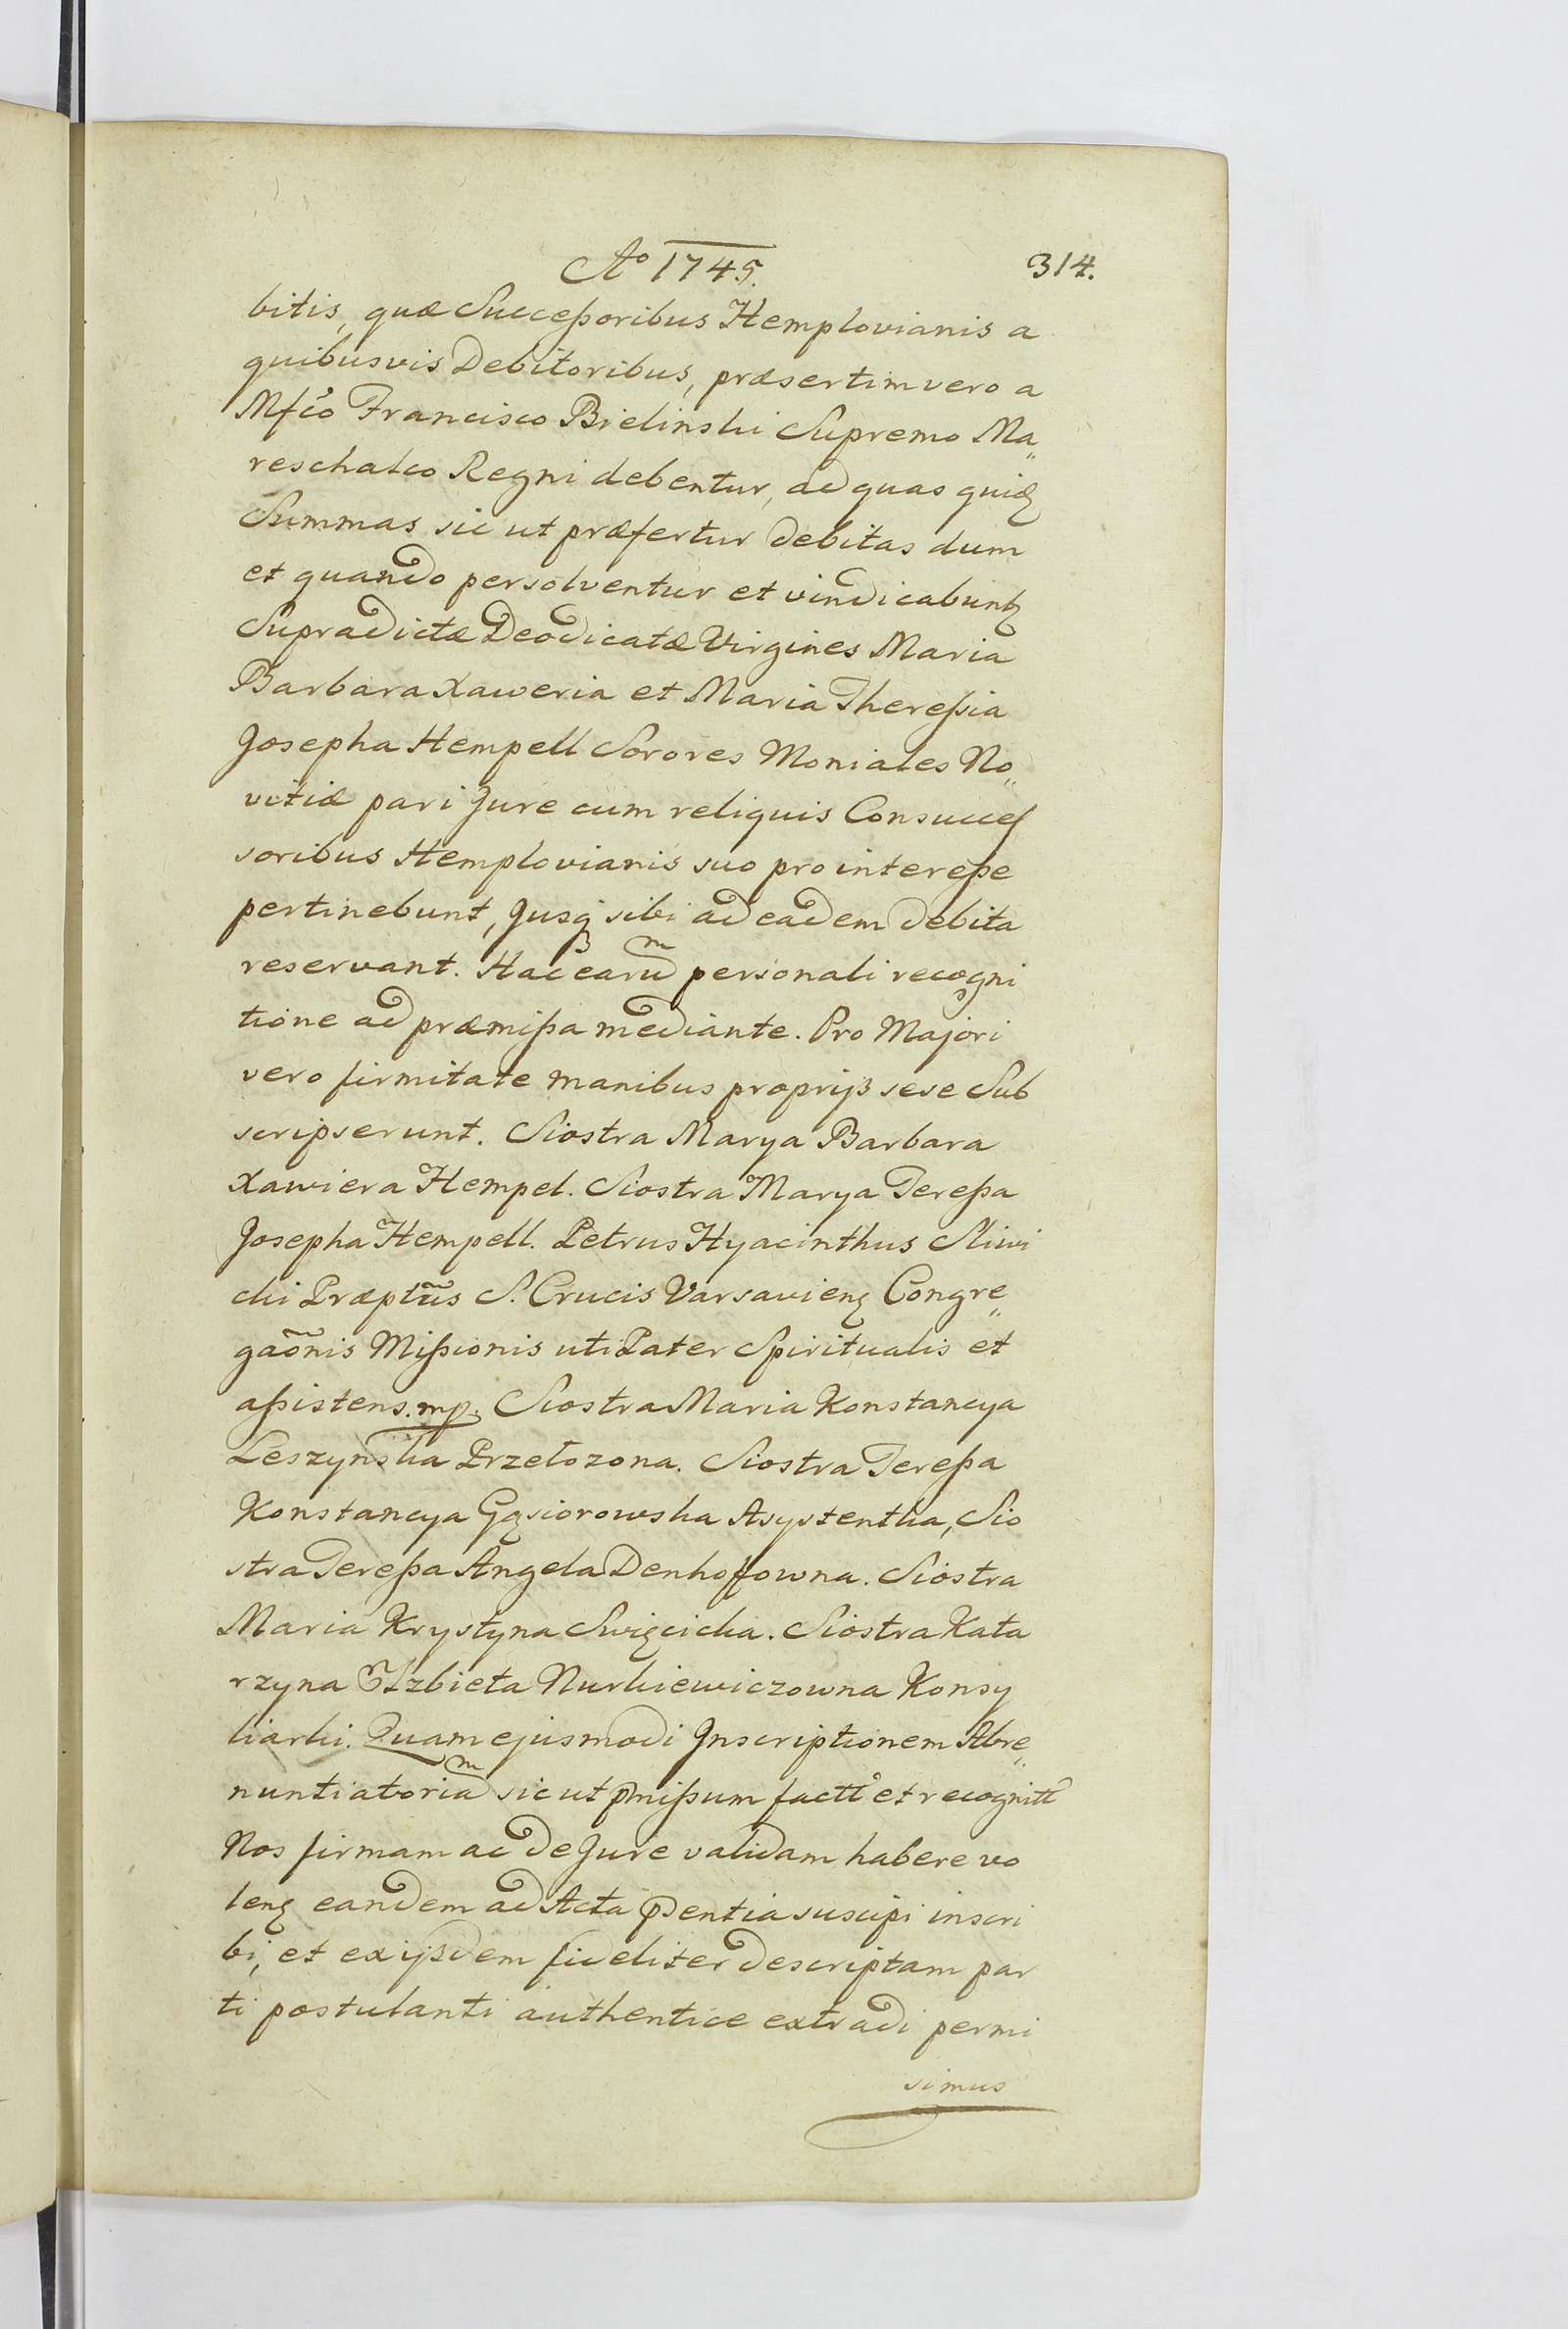 Aº 1745.
314.
bitis, quæ Successoribus Hemplovianis a
quibusvis Debitoribus, præsertim vero a
Mfco Francisco Bielinski Supremo Ma„
reschalco Regni debentur, ad quas quiꝫ
Summas sic ut præfertur debitas dum
et quando persolventur et vindicabuntꝫ
Supradictæ Deodicatæ Virgines Maria
Barbara Xaweria et Maria Theressia
Josepha Hempell Sorores Moniales No„
vitiæ pari Jure cum reliquis Consucces
soribus Hemplovianis suo pro interesse
pertinebunt, Jusq sibi ad eadem debita
reservant. Hac earum personali recogni
tione ad præmissa mediante. Pro Majori
vero firmitate manibus proprijs sese Sub
scripserunt. Siostra Marya Barbara
Xawiera Hempel. Siostra Marya Teressa
Josepha Hempell. Petrus Hyacinthus Sliwi
cki Præptũs S. Crucis Varsavienꝫ Congre„
gaõnis Missionis uti Pater Spiritualis et
assistens. mp. Siostra Maria Konstancya
Leszynska Przełozona. Siostra Teressa
Konstancya Gąsiorowska Asystentka, Sio
stra Teressa Angela Denhoffowna. Siostra
Maria Krystyna Swięcicka. Siostra Kata
rzyna Elzbieta Nurkiewiczowna Konsy
liarki. Quam ejusmodi Inscriptionem Abre„
nuntiatoriam sic ut pmissum factt et recognitt
Nos firmam ac de Jure validam habere vo
lenꝫ eandem ad Acta pͨntia suscipi inscri
bi, et ex ijsdem fideliter descriptam par
ti postulanti authentice extradi permi
simus